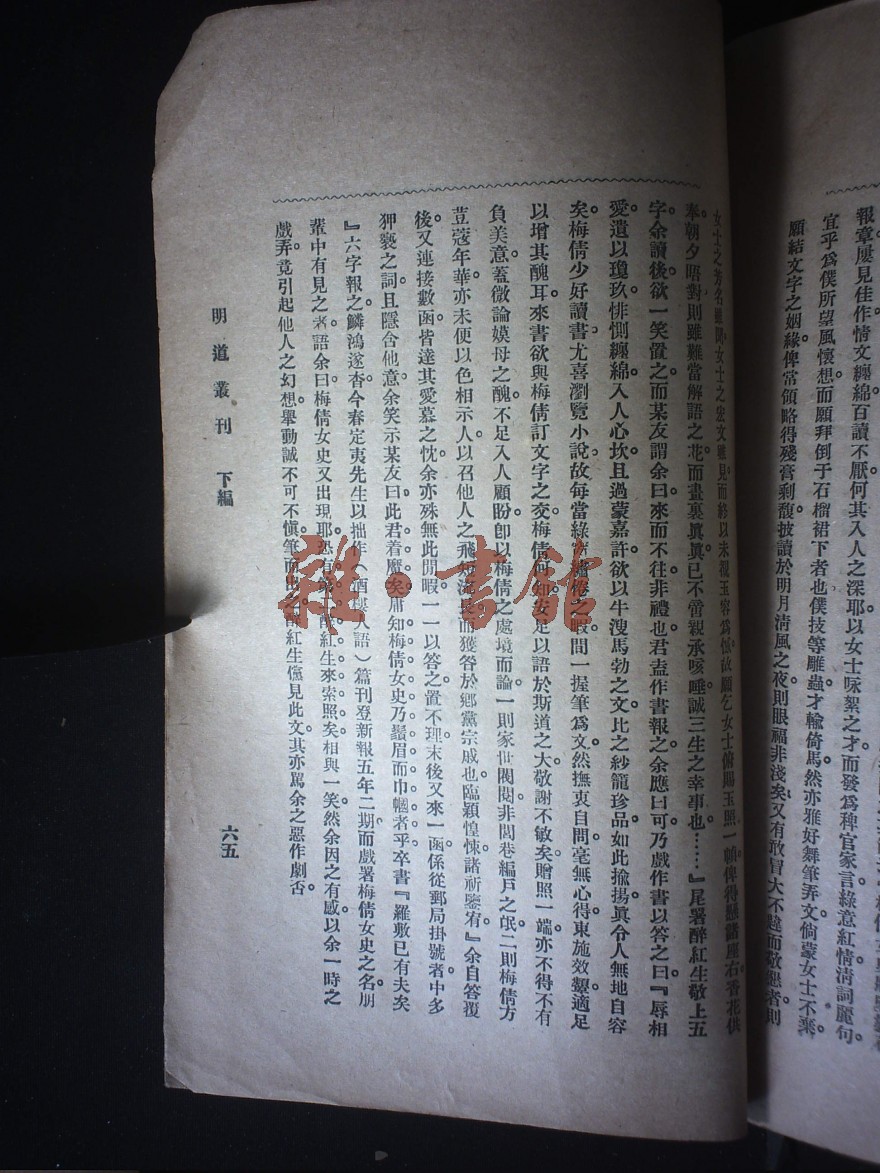 報章屢見佳作情文纏綿百讀不厭何其入人之深耶以女士咏絮之才而發爲稗官家言綠意紅情淸詞麗句
宜乎爲僕所望風懷想而願拜倒于石榴裙下者也僕技等雕蟲才輸倚馬然亦雅好舞筆弄文倘蒙女士不棄
願結文字之姻緣俾常領略得殘膏剩馥披讀於明月淸風之夜則眼福非淺矣又有敢冒大不韙而敬懇者則
女士之芳名雖聞女士之宏文雖見而終以未覩玉容爲恨故願乞女士俯賜玉照一幀俾得懸諸座右香花供
奉朝夕晤對則雖難當解語之花而畫裏眞眞已不啻親承咳唾誠三生之幸事也……』尾署醉紅生敬上五
字余讀後欲一笑置之而某友謂余曰來而不往非禮也君盍作書報之余應曰可乃戲作書以答之曰『辱相
愛遺以瓊玖悱惻纏綿入人心坎且過蒙嘉許欲以牛溲馬勃之文比之紗籠珍品如此揄揚眞令人無地自容
矣梅倩少好讀書尤喜瀏覽小說故每當綠窗繡倦之暇間一握筆爲文然撫衷自問毫無心得東施效顰適足
以增其醜耳來書欲與梅倩訂文字之交梅倩何知安足以語於斯道之大敬謝不敏矣贈照一端亦不得不有
負美意蓋微論嫫母之醜不足入人顧盼卽以梅倩之處境而論一則家世閥閱非閭巷編戶之氓二則梅倩方
荳蔻年華亦未便以色相示人以召他人之飛短流長而獲咎於鄉黨宗戚也臨穎惶悚諸祈鑒宥』余自答覆
後又連接數函皆達其愛慕之忱余亦殊無此閒暇一一以答之置不理末後又來一函係從郵局掛號者中多
狎褻之詞且隱含他意余笑示某友曰此君着魔矣庸知梅倩女史乃鬚眉而巾幗者乎卒書『羅敷已有夫矣
』六字報之鱗鴻遂杳今春定夷先生以拙作(酒樓人語)篇刊登新報五年二期而戲署梅倩女史之名朋
輩中有見之者語余曰梅倩女史又出現耶恐有醉紅生來索照矣相與一笑然余因之有感以余一時之
戲弄竟引起他人之幻想舉動誠不可不愼筆而出之醉紅生儻見此文其亦罵余之惡作劇否
明道叢刊 下編
六五
雜·書館